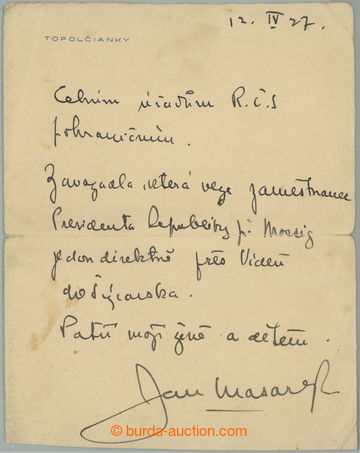 12. IV 27.
TOPOLČIANKY
Celním úřadům R.Č.S
pohraničním.
Zavazadla, která veze zaměstnanec
Presidenta Republiky p. Mossig
jedou direktně přes Vídeň
do Švýcarska.
Patří mojí ženě a dětem.
Jan Masaryk
© burda-auction.com